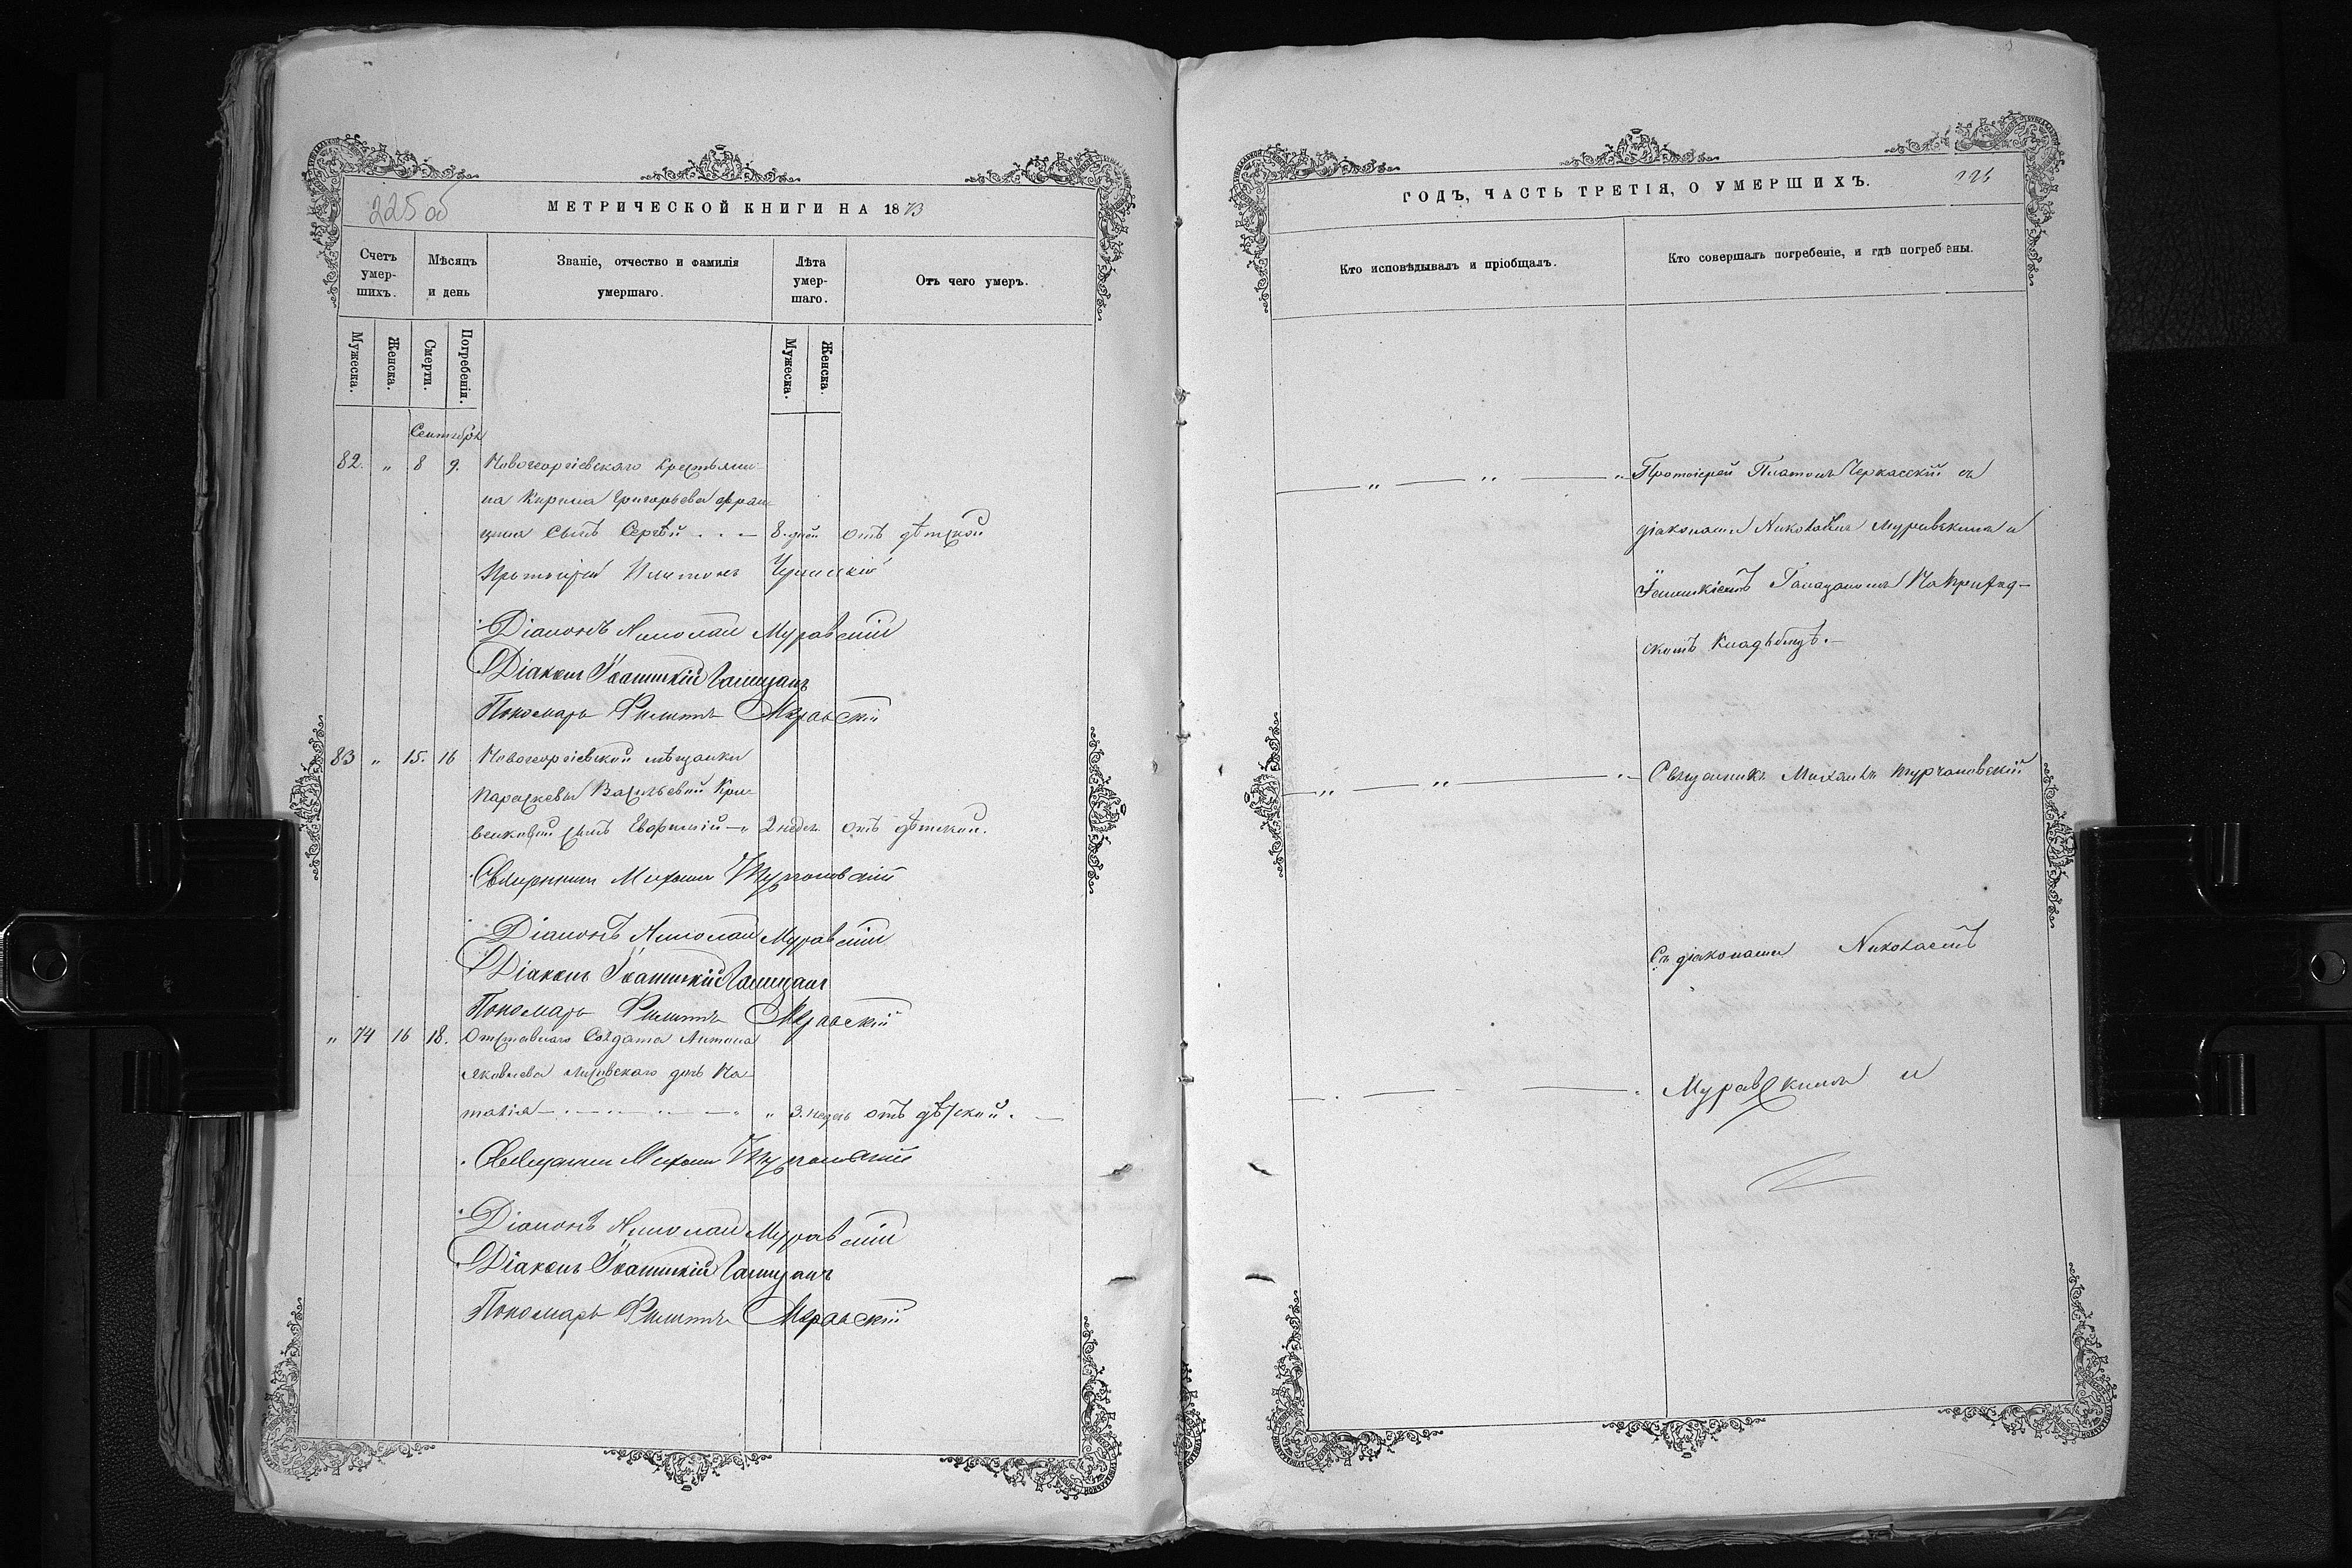 225 об
МЕТРИЧЕСКОЙ КНИГИ НА 1873
Счетъ умер-шихъ.
Мѣсяцъ и день
Званіе, отчество и фамилія умершаго.
Лѣта умер-шаго.
Отъ чего умеръ.
Мужеска.
Женска.
Смерти.
Погребенія.
Мужеска.
Женска.
Сентябрь
82. " 8 9. Новогеоргіевскаго крестьяни-
на Кирила Григорьева
сынъ Сергѣй 8. дней отъ дѣтской
Протоіерей Платонъ Черкасскій
Діаконъ Николай Муравскій
Діаконъ Іоанникій Галицанъ
Пономарь Филиппъ Муравскій
83 " 15. 16 Новогеоргіевской мѣщанки
Параскевы Васильевой Кри-
сынъ Евфимій 2 недел. отъ дѣтской.
Священникъ Михаилъ Турчановскій
Діаконъ Николай Муравскій
Діаконъ Іоанникій Галицанъ
Пономарь Филиппъ Муравскій
" 74 16 18. Отставнаго Солдата Антона
Яковлева дочь На-
талія " 3. недель отъ дѣтской.
Священникъ Михаилъ Турчановскій
Діаконъ Николай Муравскій
Діаконъ Іоанникій Галицанъ
Пономарь Филиппъ Муравскій
ГОДЪ, ЧАСТЬ ТРЕТІЯ, О УМЕРШИХЪ.
Кто исповѣдывалъ и пріобщалъ.
Кто совершалъ погребеніе, и гдѣ погребены.
Протоіерей Платонъ Черкасскій съ
діаконами Николаемъ Муравскимъ и
Іоанникіемъ Галицаномъ На приход-
скомъ кладбищѣ.
Священникъ Михаилъ Турчановскій
Съ діаконами Николаемъ
Муравскимъ и